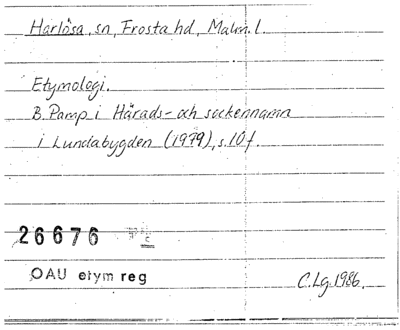 Harlösa, sn, Frosta hd, Malm. l.
Etymologi.
B. Pamp i Härads- och sockennamn
i Lundabygden (1979), s. 10 f.
26676
OAU etym reg
C. Lg. 1986.